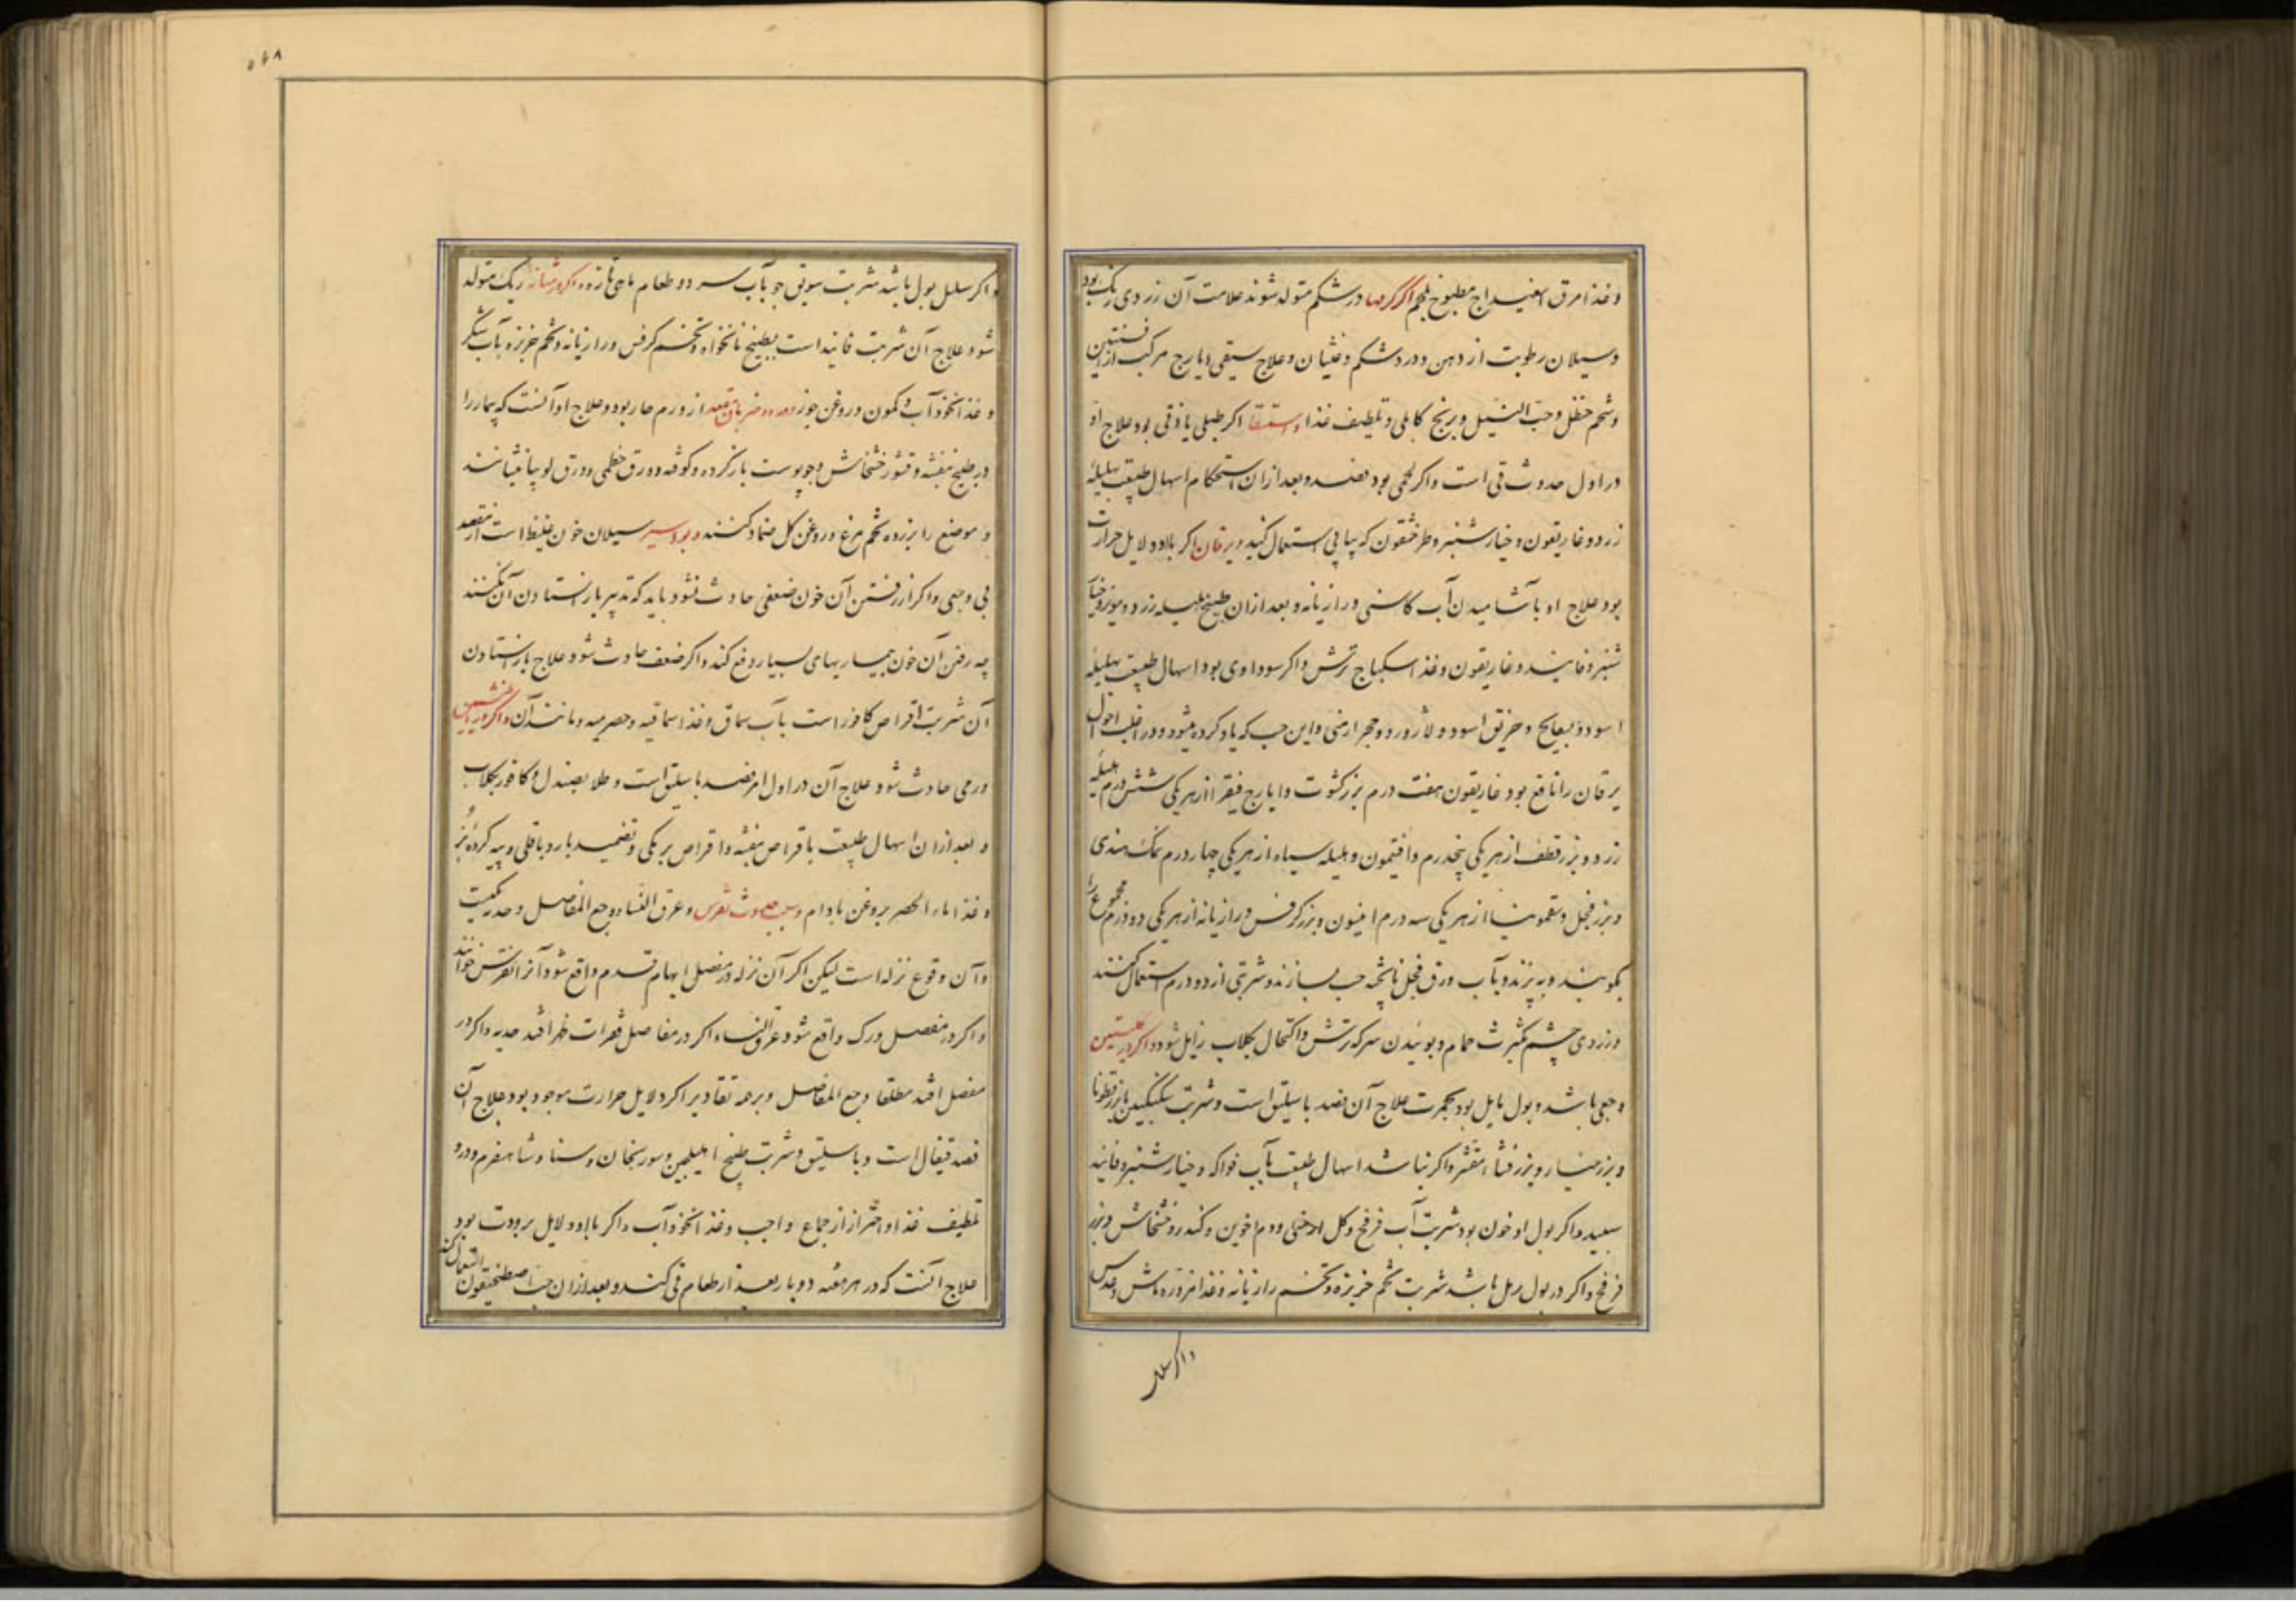 وغذا مرق اسفیداج مطبوخ بلحم اگر کرمها در شکم متولد شوند علامت آن زردی رنک بود
وسیلان رطوبت از دهن ودرد شکم وغثیان وعلاج سقی ایارج مرکب از افسنتین
وشحم حنظل وحب النیل وبرنج کابلی وتلطیف غذا واستسقا اکر طبلی یا زقی بود علاج او
در اول حدوث قی است واکر لحمی بود فصد وبعد از ان استحکام اسهال طبیعت بهلیله
زرد وغاریقون وخیارشنبر وطرخشقون که پیاپی استعمال کنند ویرقان اکر بااو دلایل حرارت
بود علاج او بآشامیدن آب کاسنی ورازیانه وبعد ازان طبیخ هلیله زرد ومویز وخیار
شنبر وفانید وغاریقون وغذا سکباج ترش واکر سوداوی بود اسهال طبیعت بهلیله
اسود وبسفایج وخربق اسود ولاژورد وحجر ارمنی واین حب که یاد کرده میشود در اغلب احوال
یرقان را نافع بود غاریقون هفت درم بزر کشوت وایارج فیقرا از هر یکی شش درم هلیله
زرد وبزر قطف از هر یکی پنجدرم وافتیمون وهلیله سیاه از هر یکی چهار درم نمک هندی
وبزر فجل وسقمونیا از هر یکی سه درم انیسون وبزر کرفس ورازیانه از هر یکی دو درم مجموع را
بکوبند وبپزند وبآب ورق فجل ناپخته حب بسازند وشربتی از دو درم استعمال کنند
وزردی چشم بکثرت حمام وبوئیدن سرکه ترش واکتحال بکلاب زایل شود واکر در
وجعی باشد وبول مایل بود بحمرت علاج آن فصد باسلیق است وشربت سکنجبین با بزر قطونا
وبزر خیار وبزر قثاء مقشر واکر نباشد اسهال طبیعت بآب فواکه وخیارشنبر وفانید
سپید واکر بول او خون بود شربت آب فرفخ وکل ارمنی ودم اخوین وکندر وخشخاش وبزر
فرفخ واکر در بول رمل باشد شربت تخم خربزه وتخم رازیانه وغذا مزوره ماش وعدس
واکر سلس
۵۶۸
واکر سلسل بول باشد شربت سویق جو بآب سرد وطعام ماهی تازه واکر در مثانه ریک متولد
شود علاج آن شربت فانید است بطبیخ نانخواه وتخم کرفس ورازیانه وتخم خربزه بآب شکر
وغذا نخودآب وکمون وروغن جوز ودرد وضربان مقعد از ورم حار بود وعلاج او آنست که بیمار را
در طبیخ بنفشه وقشور خشخاش وجو پوست باز کرده وکوفته وورق خطمی وورق لوبیا نشانند
وموضع را بزرده تخم مرغ وروغن کل ضماد کنند وبواسیر سیلان خون غلیظ است از مقعد
بی وجعی واکر از رفتن آن خون ضعفی حادث نشود باید که تدبیر باز استادن آن نکنند
چه رفتن آن خون بیماریهای بسیار دفع کند واکر ضعف حادث شود علاج باز استادن
آن شربت اقراص کافور است بآب سماق وغذا سماقیه وحصرمیه ومانند آن واکر در انثیین
ورمی حادث شود علاج آن در اول امر فصد باسلیق است وطلا بصندل وکافور بکلاب
وبعد ازان اسهال طبیعت باقراص بنفشه واقراص برمکی وتضمید بارد باقلی وپیه کرده بز
وغذا ماء الحصر بروغن بادام وسبب حدوث نقرس وعرق النسا ووجع المفاصل وحدبه یکیست
وآن وقوع نزله است لیکن اکر آن نزله در مفصل ابهام قدم واقع شود آنرا نقرس خوانند
واکر در مفصل ورک واقع شود عرق النساء واکر در مفاصل فقرات ظهر افتد حدبه واکر در
مفصل افتد مطلقا وجع المفاصل وبر همه تقادیر اکر دلایل حرارت موجود بود علاج آن
فصد قیفال است وباسلیق وشربت طبیخ اهلیلجین وسورنجان وسنا وشاهسفرم وورد
وتلطیف غذا واحتراز از جماع واجب وغذا نخودآب واکر بااو دلایل برودت بود
علاج آنست که در هر هفته دو بار بعد از طعام قی کند وبعد ازان حب اصطمخیقون استعمال کند